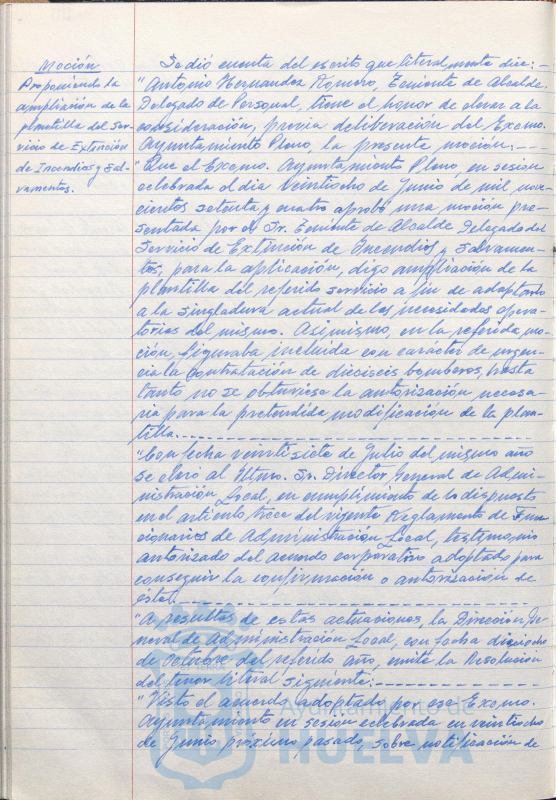 Moción
Proponiendo la
ampliación de la
plantilla del Ser-
vicio de Extinción
de Incendios y Sal-
vamentos.
Se dió cuenta del escrito que literalmente dice:-
"Antonio Hernandez Romero, Teniente de Alcalde,
Delegado de Personal, tiene el honor de elevar a la
consideración, previa deliberación del Excmo.
Ayuntamiento Pleno, la presente moción:---
"Que el Excmo. Ayuntamiento Pleno, en sesión
celebrada el día veintiocho de Junio de mil nove-
cientos setenta y cuatro aprobó una moción pre-
sentada por el Sr. Teniente de Alcalde Delegado del
Servicio de Extinción de Incendios y Salvamen-
tos, para la aplicación, digo ampliación de la
plantilla del referido servicio a fin de adaptarlo
a la singladura actual de las necesidades opera-
torias del mismo. Asimismo, en la referida mo-
ción, figuraba incluida con carácter de urgen-
cia la contratación de dieciseis bomberos, hasta
tanto no se obtuviese la autorización necesa-
ria para la pretendida modificación de la plan-
tilla.---
"Con fecha veintisiete de Julio del mismo año
se elevó al Iltmo. Sr. Director General de Admi-
nistración Local, en cumplimiento de lo dispuesto
en el artículo trece del vigente Reglamento de Fun-
cionarios de Administración Local, testimonio
autorizado del acuerdo corporativo adoptado para
conseguir la confirmación o autorización de
éste.---
"A resultas de estas actuaciones, la Dirección Ge-
neral de Administración Local, con fecha dieciocho
de Octubre del referido año, emite la Resolución
del tenor literal siguiente:---
"Visto el acuerdo adoptado por ese Excmo.
Ayuntamiento en sesión celebrada en veintiocho
de Junio próximo pasado, sobre modificación de
Ayuntamiento de
HUELVA